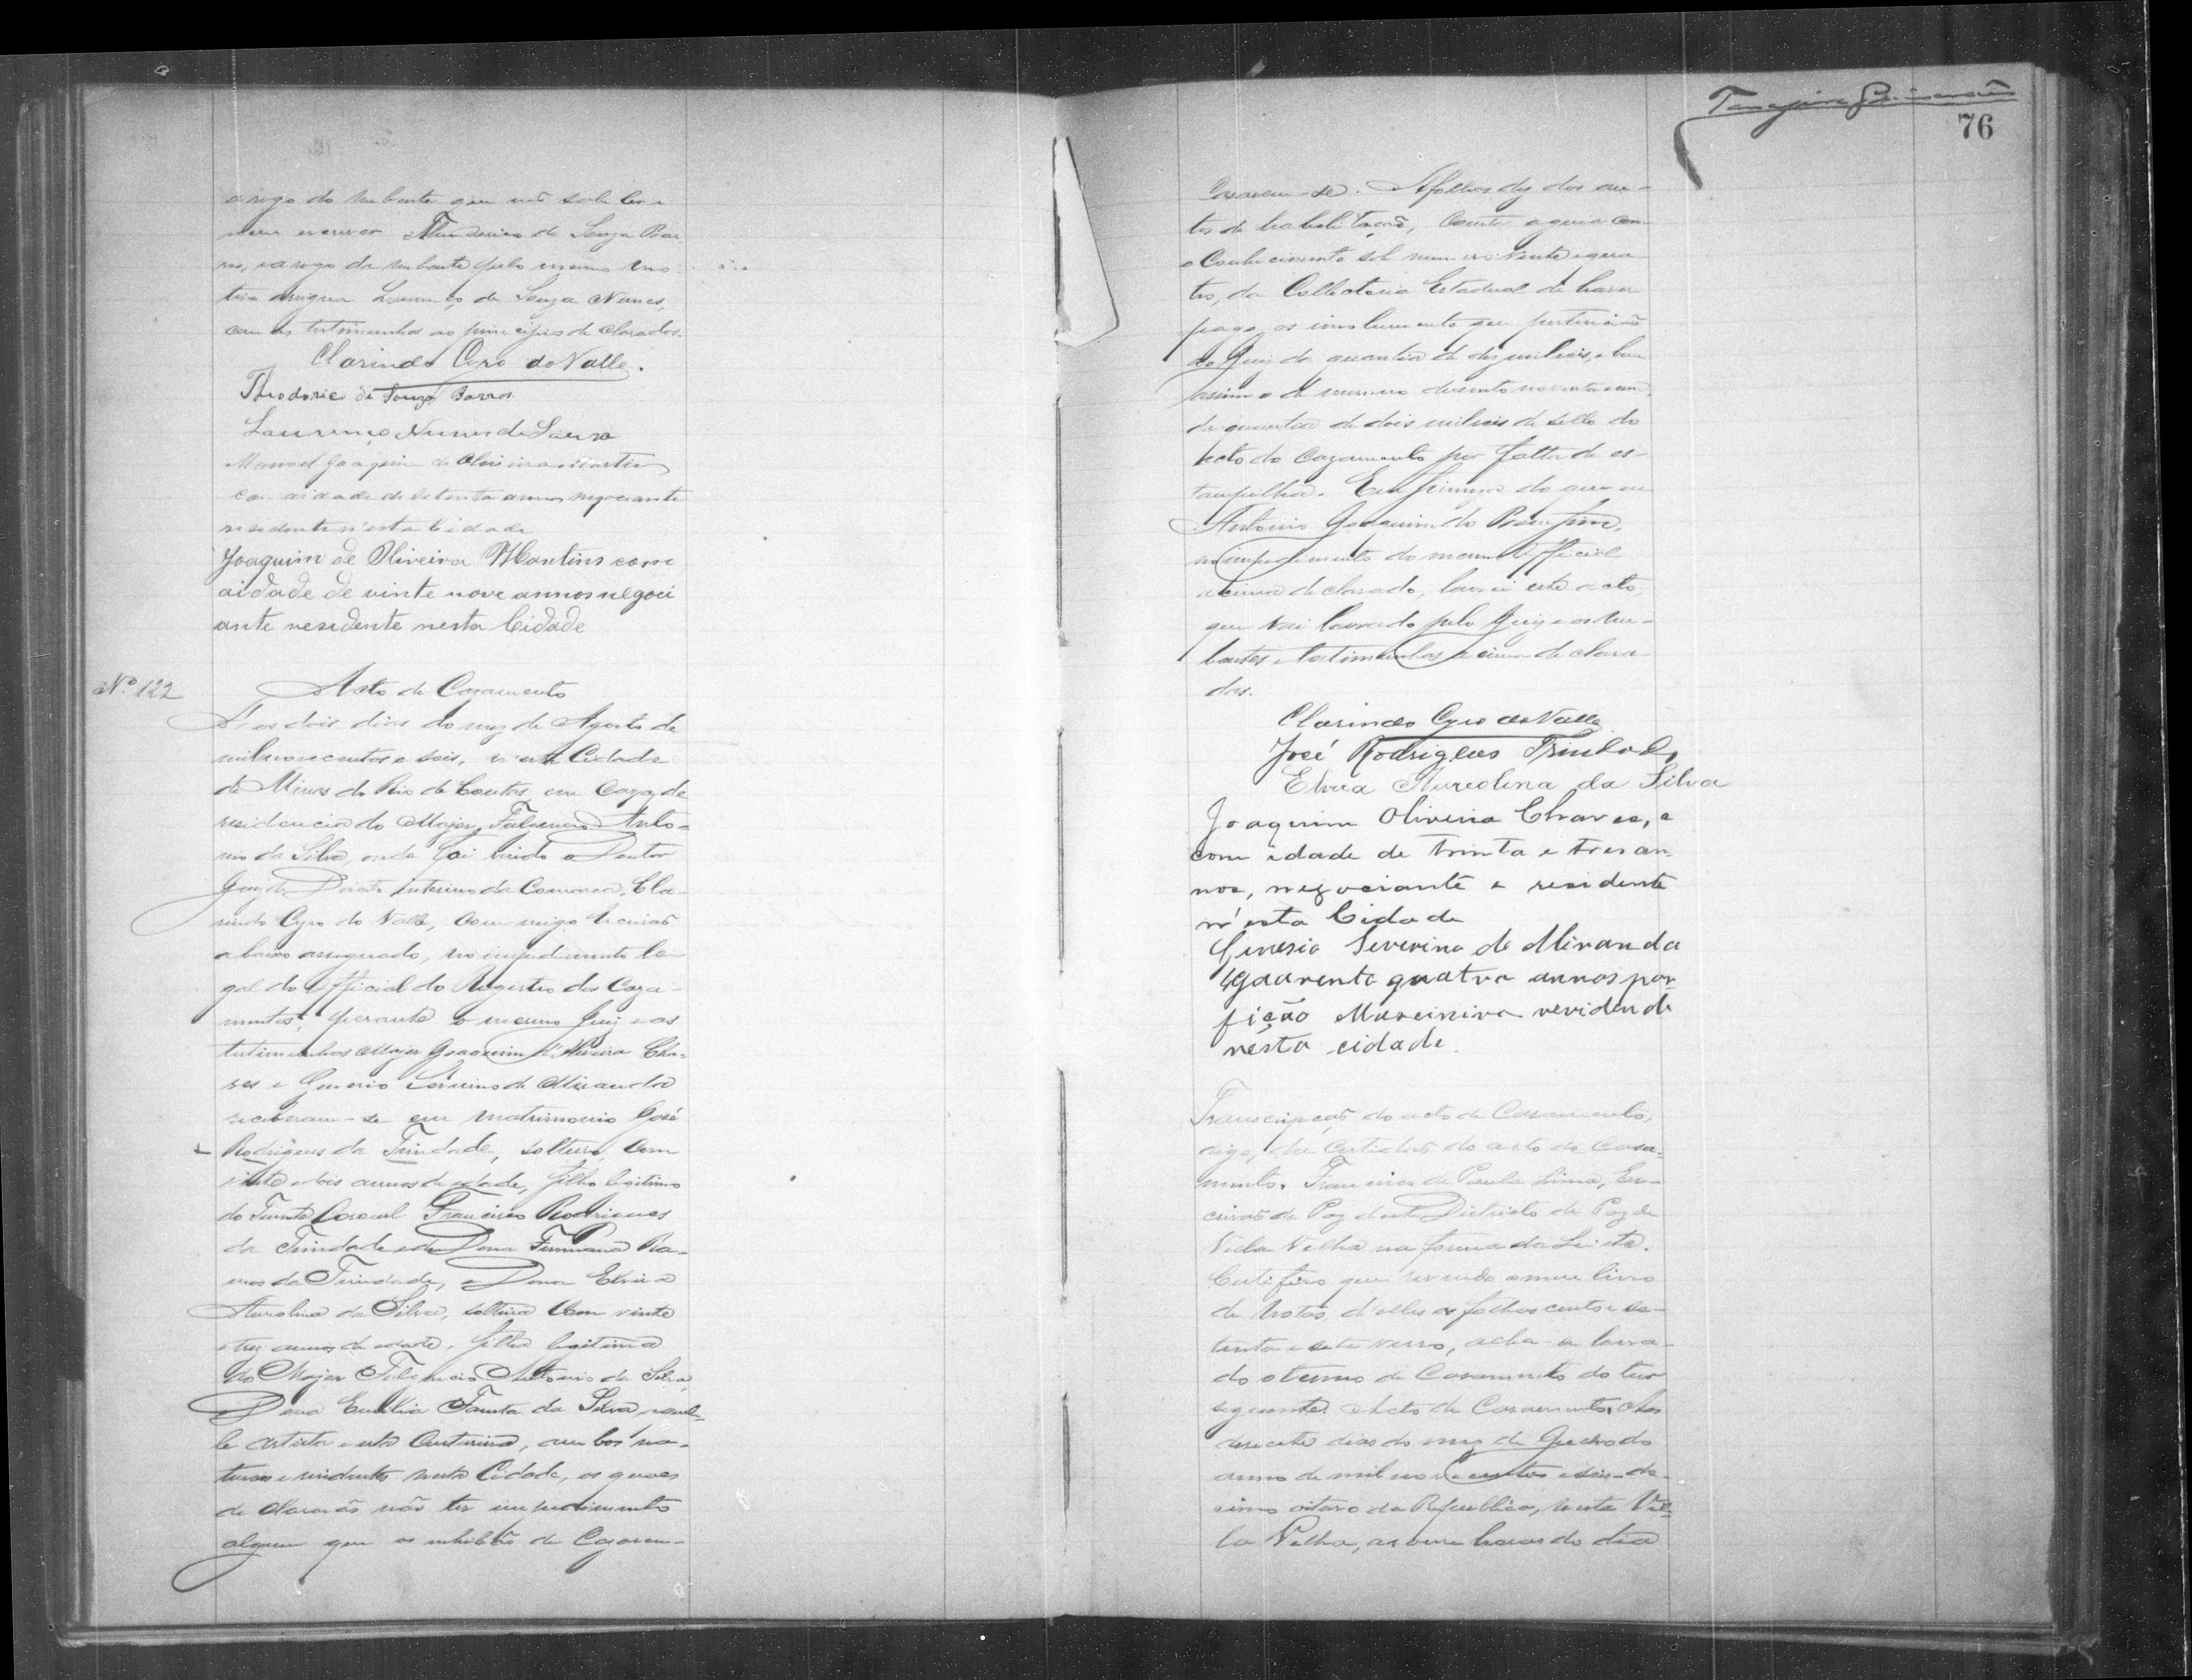 a rogo do nubente que não sabe ler e
nem escrever Theodorico de Souza Bar
ros, e a rogo da nubente pelo mesmo mo
tivo assigna Lourenço de Souza Nunes,
com as testimunhas ao principio declarados.
Clarindo Cyro do Valle.
Theodorico de Souza Barros
Lourenço Nunes de Souza
Manoel Joaquim de Oliveira Martins
com aidade de setenta annos negociante
residente n'esta Cidade
Joaquim de Oliveira Martins com
aidade de vinte nove annos negoci
ante residente nesta Cidade
Nº 122
Acto de Casamento
Aos dois dias do mez de Agosto de
mil novecentos e seis, n'esta Cidade
de Minas do Rio de Contas em Caza de
residencia do Major Fulgencio Anto-
nio da Silva, onde foi vindo o Doutor
Juiz de Direito interino da Comarca, Cla-
rindo Cyro do Valle, commigo Escrivão
abaixo assignado, no impedimento le
gal do Official do Registro dos Caza-
mentos, perante o mesmo Juiz e as
testimunhas Major Joaquim Oliveira Cha-
ves e Genesio Severino de Miranda
receberam-se em matrimonio José
Rodrigues da Trindade, solteiro, com
vinte e dois annos de edade, filho legitimo
do Tenente Coronel Francisco Rodrigues
da Trindade e de Dona Firmiana Ra-
mos da Trindade, e Dona Elvira
Aureolina da Silva, solteira com vinte
e trez annos de edade, filha legitima
do Major Fulgencio Antonio da Silva,
Dona Emilia Fausta da Silva, aquel-
le artista e esta Costureira, ambos na-
turaes e residentes nesta Cidade, os quaes
declararão não ter impedimento
algum que os inhibão de Cazarem-
76
Casarem-se. A folhas dez dos au-
tos de habilitação, Consta a guia com
o Conhecimento sob numero vinte e qua
tro, da Collectoria Estadual de haver
pago os imolumentos que pertencião
ao Juiz da quantia de dez mil reis, e bem
assim o de numero duzentos noventa e um,
da quantia de dois mil reis de sello do
acto do Cazamento por falta de es-
tampilha. Em firmeza do que eu
Antonio Joaquim do Bomfim,
no impedimento do mesmo Official
acima declarado, lavrei este acto,
que vai lavrado pelo Juiz e os nu-
bentes e testimunhas acima declara
das.
Clarindo Cyro do Valle
José Rodrigues Trindade
Elvira Aureolina da Silva
Joaquim Oliveira Chaves, e
com idade de trinta e tres an-
nos, negociante e residente
n'esta Cidade
Genesio Severino de Miranda
Quarenta quatro annos por
fição Marcineiro residende
nesta cidade.
Transcripção do acto de Casamento,
digo, da Certidão do acto de Casa-
mento. Francisco de Paula Lima, Es-
crivão de Paz deste Districto de Paz de
Villa Velha na forma da Lei etc.
Certifico que revendo o meu livro
de Notas, d'elles as folhas cento e se-
tenta e sete verso, acha-se lavra-
do o termo de Casamento do teor
seguinte: Acto de Casamento. Aos
desecete dias do mez de Junho do
anno de mil novecentos e seis - de-
cimo oitavo da Republica, n'esta Vil-
la Velha, as onze horas do dia